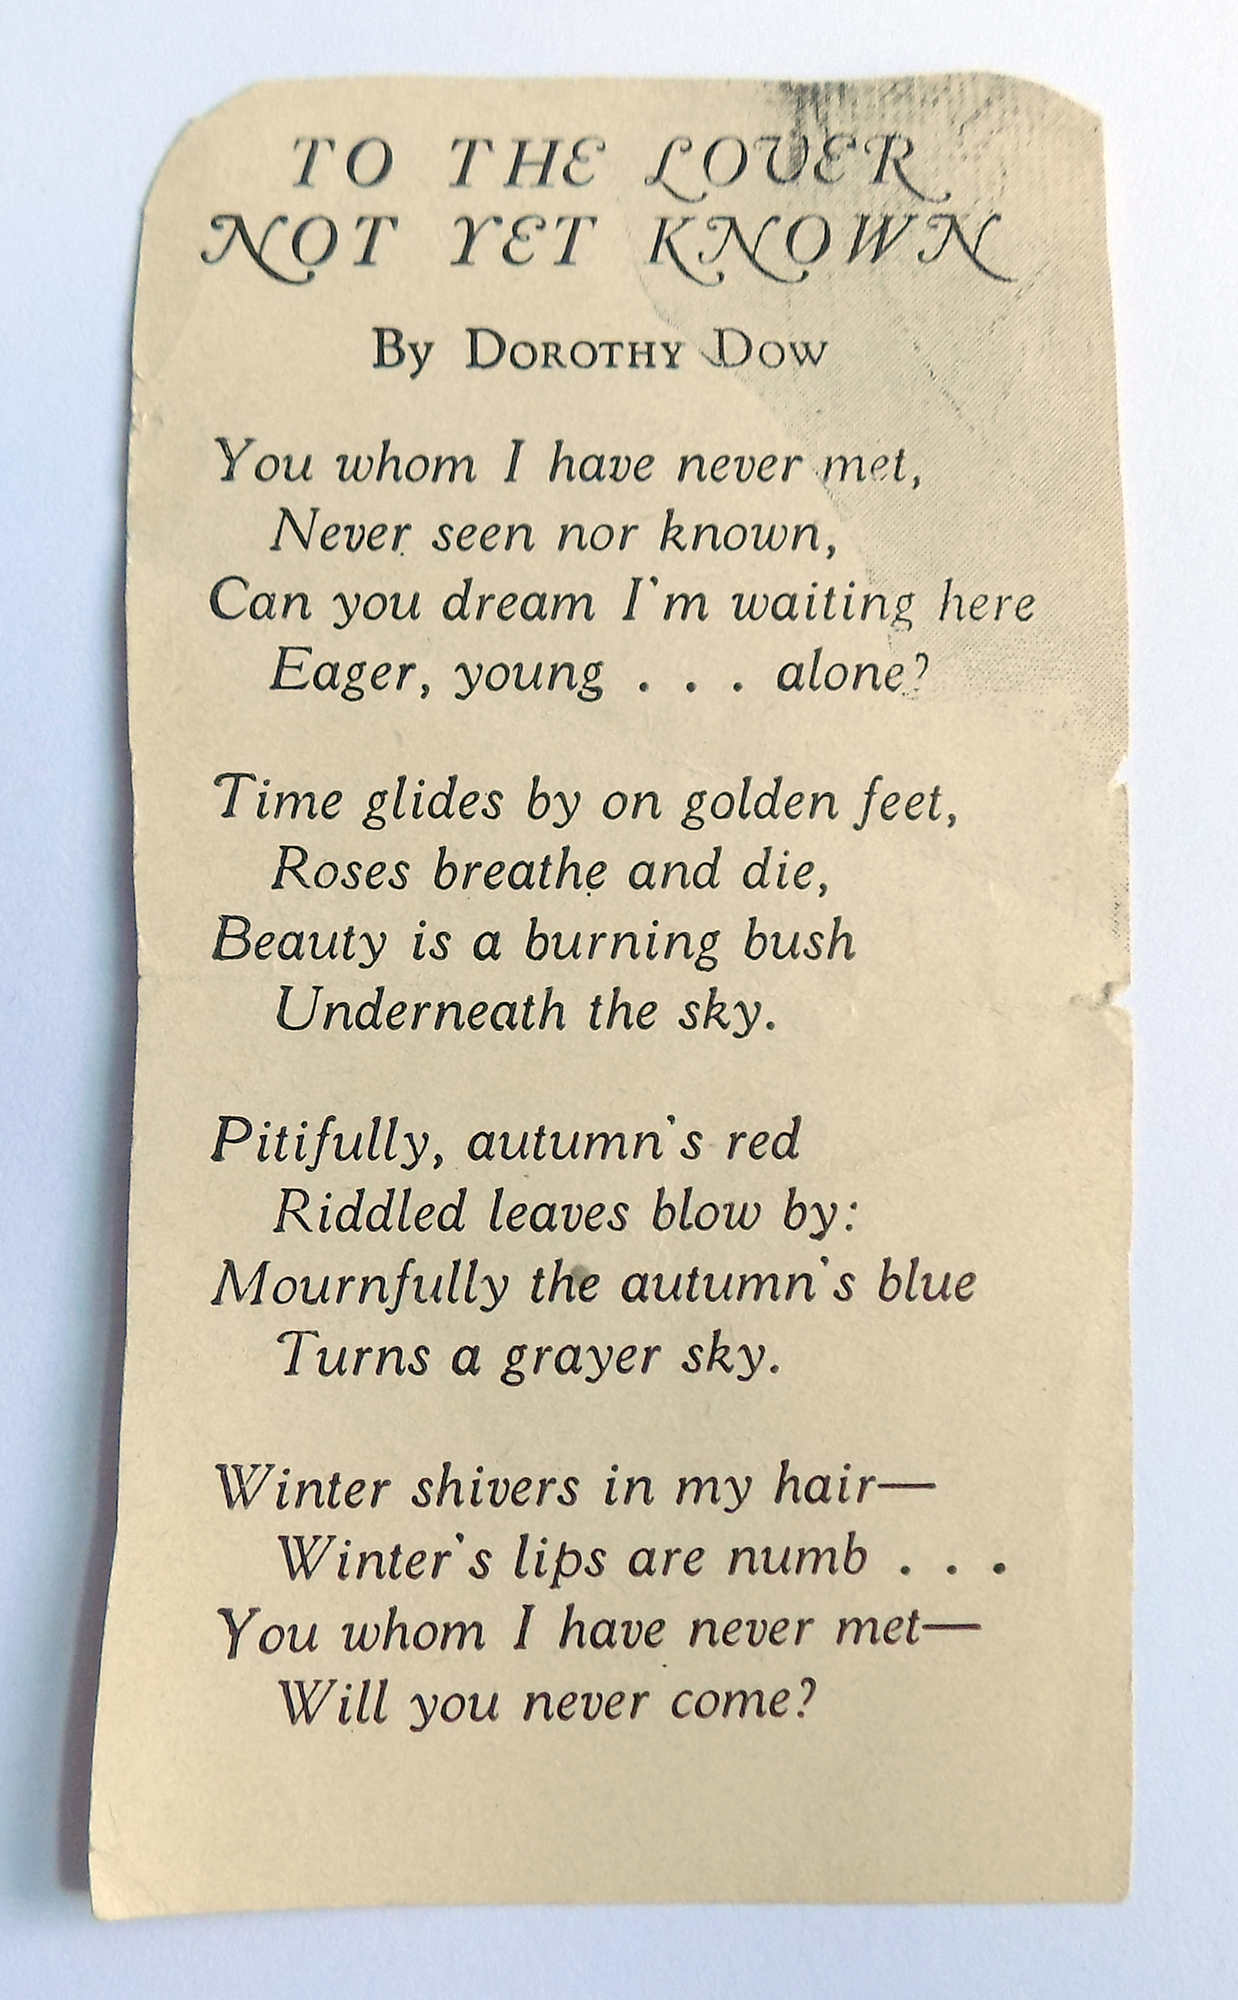 TO THE LOVER
NOT YET KNOWN
By DOROTHY DOW
You whom I have never met,
Never seen nor known,
Can you dream I'm waiting here
Eager, young . . . alone?
Time glides by on golden feet,
Roses breathe and die,
Beauty is a burning bush
Underneath the sky.
Pitifully, autumn's red
Riddled leaves blow by:
Mournfully the autumn's blue
Turns a grayer sky.
Winter shivers in my hair—
Winter's lips are numb . . .
You whom I have never met—
Will you never come?